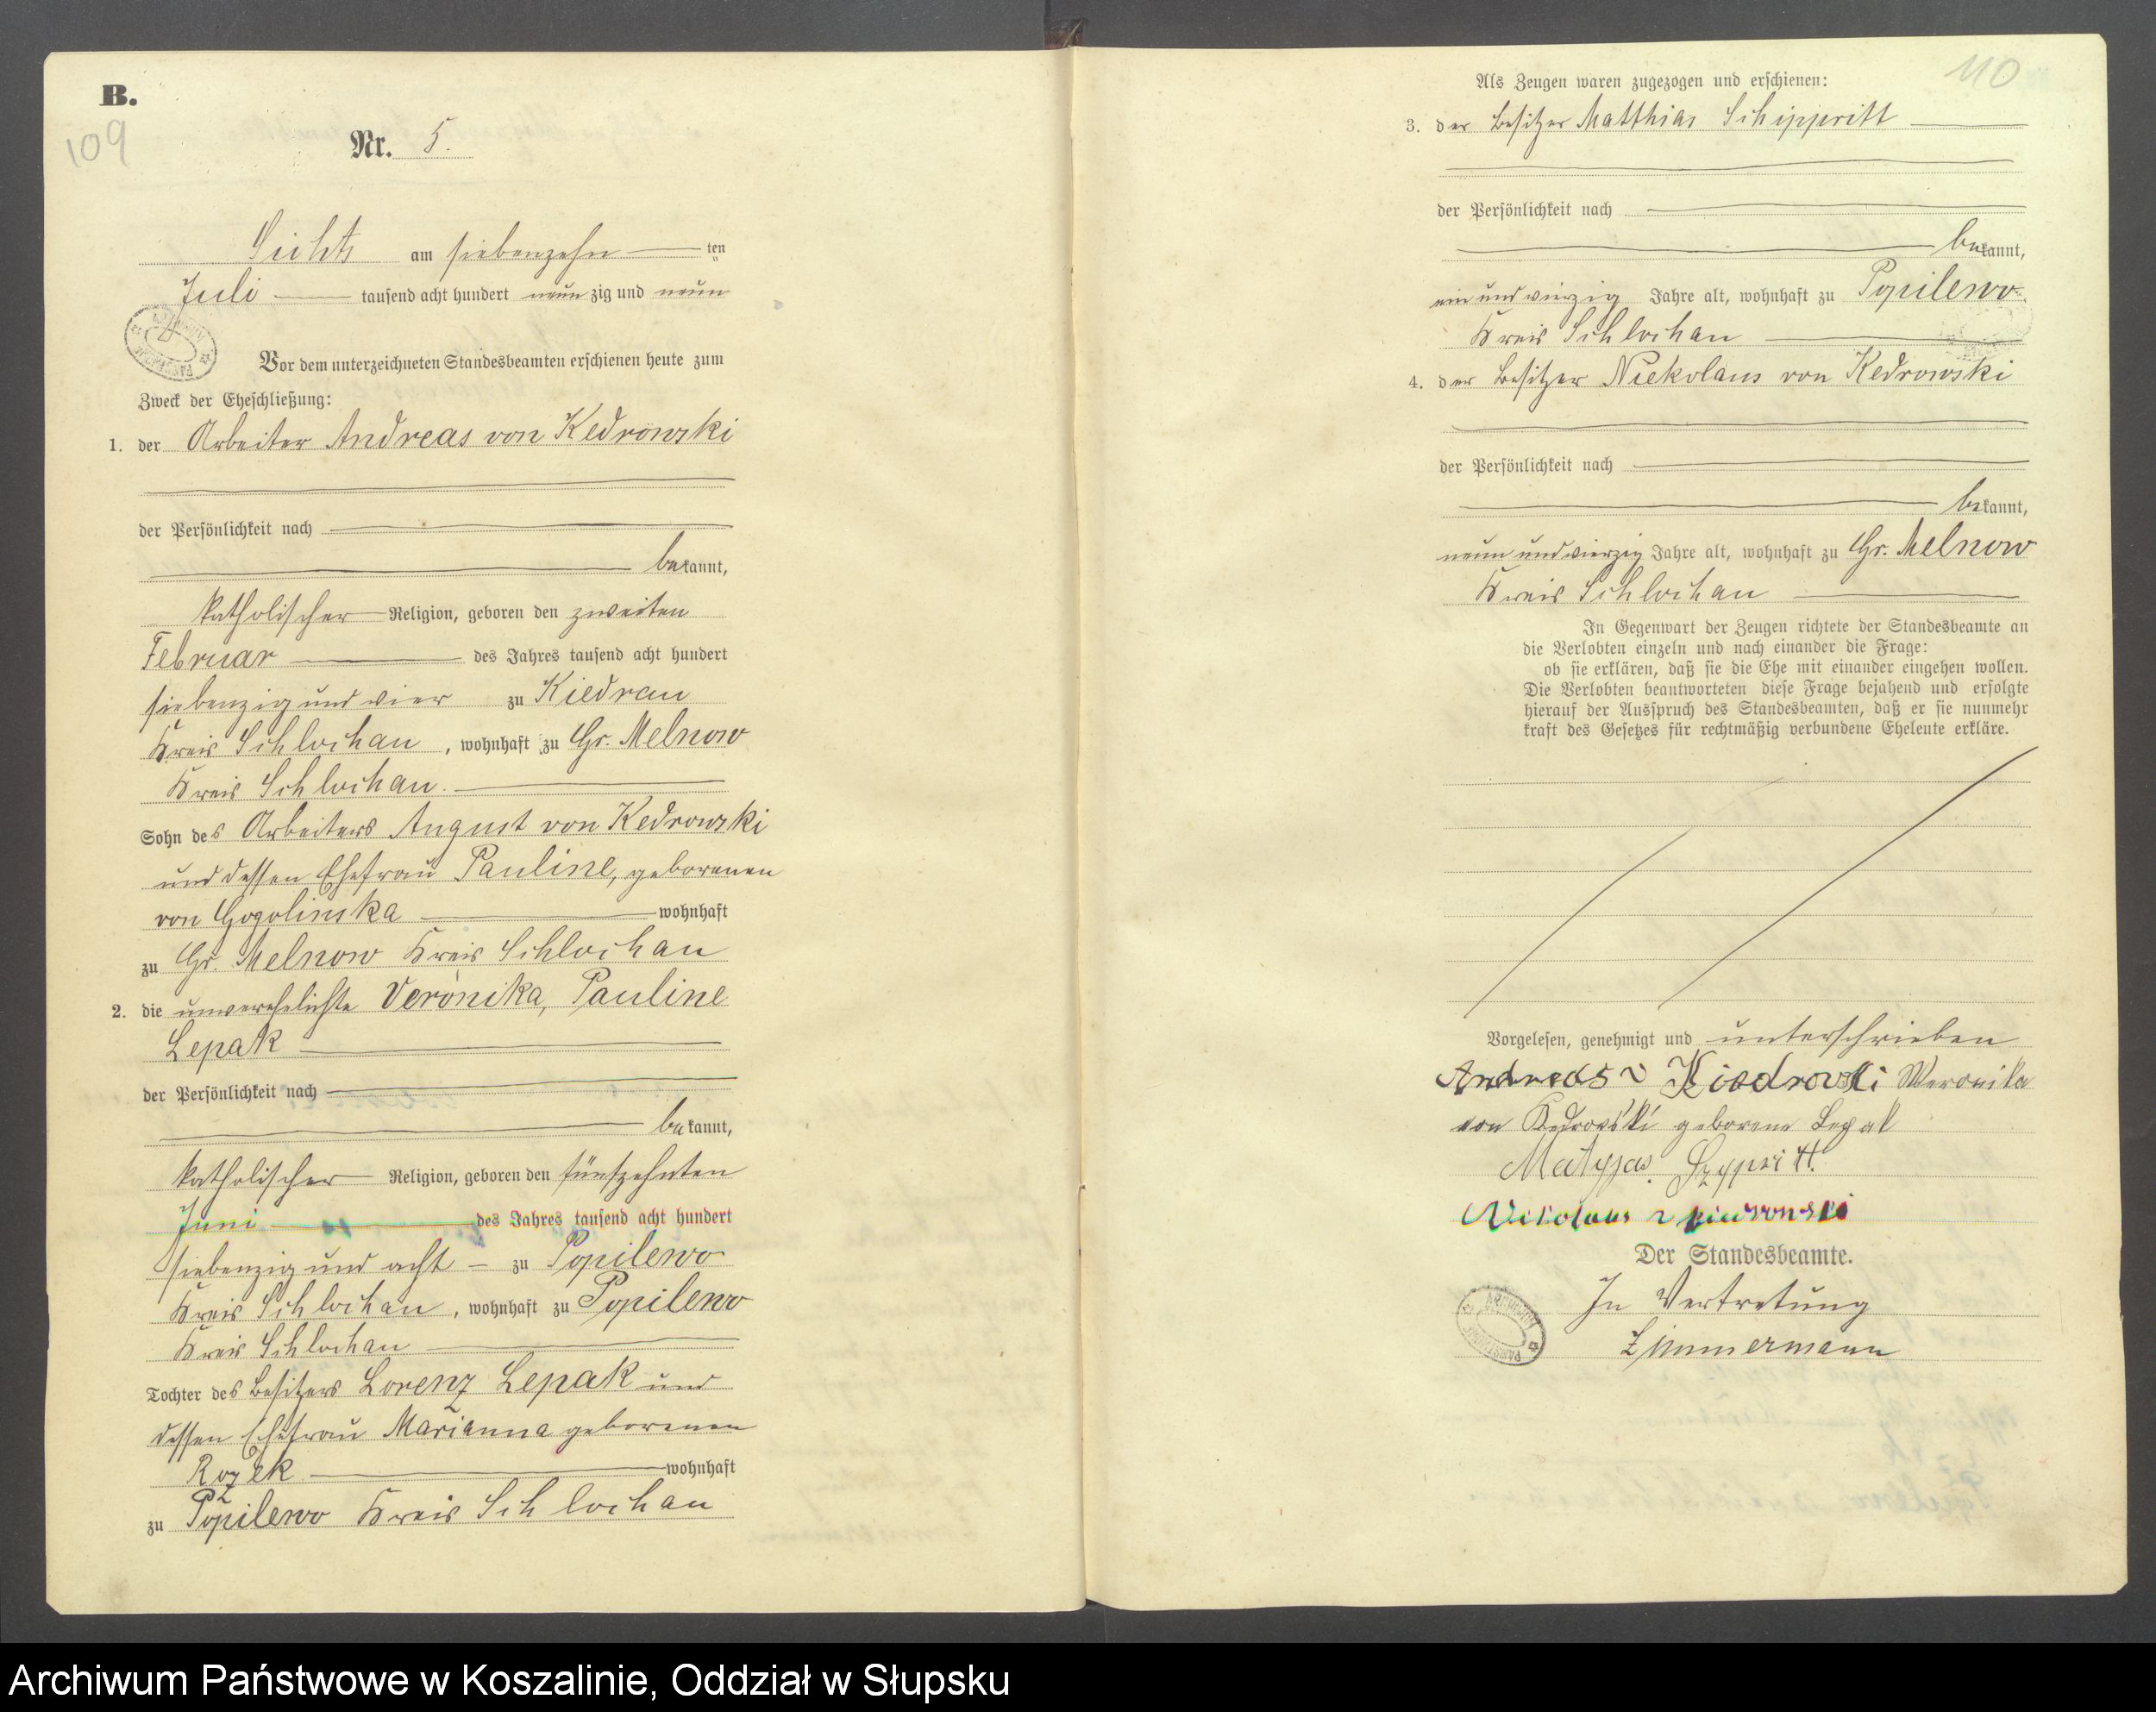 B.
109
Nr. 5.
Lichts am siebenzehn ten
Juli tausend acht hundert neunzig und neun
Vor dem unterzeichneten Standesbeamten erschienen heute zum
Zweck der Eheschließung:
1. der Arbeiter Andreas von Kedrowski
der Persönlichkeit nach
bekannt,
katholischer Religion, geboren den zweiten
Februar des Jahres tausend acht hundert
siebenzig und vier zu Kiedrau
Kreis Schlochau, wohnhaft zu Gr. Melnow
Kreis Schlochau.
Sohn des Arbeiters August von Kedrowski
und dessen Ehefrau Pauline, geborenen
von Gogolinska wohnhaft
zu Gr. Melnow Kreis Schlochau
2. die unverehelichte Veronika, Pauline
Lepak
der Persönlichkeit nach
bekannt,
katholischer Religion, geboren den fünfzehnten
Juni des Jahres tausend acht hundert
siebenzig und acht zu Popilewo
Kreis Schlochau, wohnhaft zu Popilewo
Kreis Schlochau
Tochter des Besitzers Lorenz Lepak und
dessen Ehefrau Marianna geborenen
Rozek wohnhaft
zu Popilewo Kreis Schlochau
110
Als Zeugen waren zugezogen und erschienen:
3. der Besitzer Matthias Schippritt
der Persönlichkeit nach
bekannt,
ein und vierzig Jahre alt, wohnhaft zu Popilewo
Kreis Schlochau
4. der Besitzer Niekolaus von Kedrowski
der Persönlichkeit nach
bekannt,
neun und vierzig Jahre alt, wohnhaft zu Gr. Melnow
Kreis Schlochau
In Gegenwart der Zeugen richtete der Standesbeamte an
die Verlobten einzeln und nach einander die Frage:
ob sie erklären, daß sie die Ehe mit einander eingehen wollen.
Die Verlobten beantworteten diese Frage bejahend und erfolgte
hierauf der Ausspruch des Standesbeamten, daß er sie nunmehr
kraft des Gesetzes für rechtmäßig verbundene Eheleute erkläre.
Vorgelesen, genehmigt und unterschrieben
Andreas v Kiedrovski Weronika
von Kedrowski geborene Lepak
Matyjas Szypritt.
Nikolaus v Kiedrowski
Der Standesbeamte.
In Vertretung
Zimmermann
Archiwum Państwowe w Koszalinie, Oddział w Słupsku